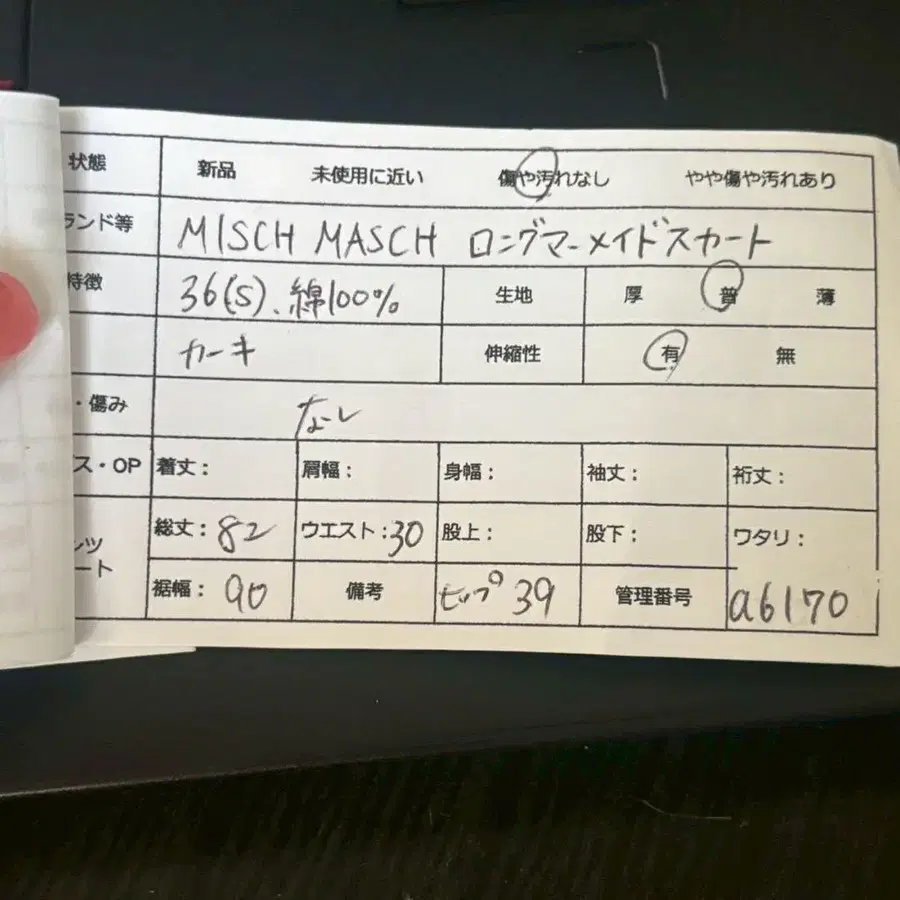 状態 新品 未使用に近い 傷や汚れなし やや傷や汚れあり
ランド等 MISCH MASCH ロングマーメイドスカート
特徴 36(S)、綿100% 生地 厚 普 薄
カーキ 伸縮性 有 無
・傷み なし
ス・OP 着丈: 肩幅: 身幅: 袖丈: 裄丈:
ンツ 総丈:82 ウエスト:30 股上: 股下: ワタリ:
ート 裾幅:90 備考 ヒップ39 管理番号 a6170